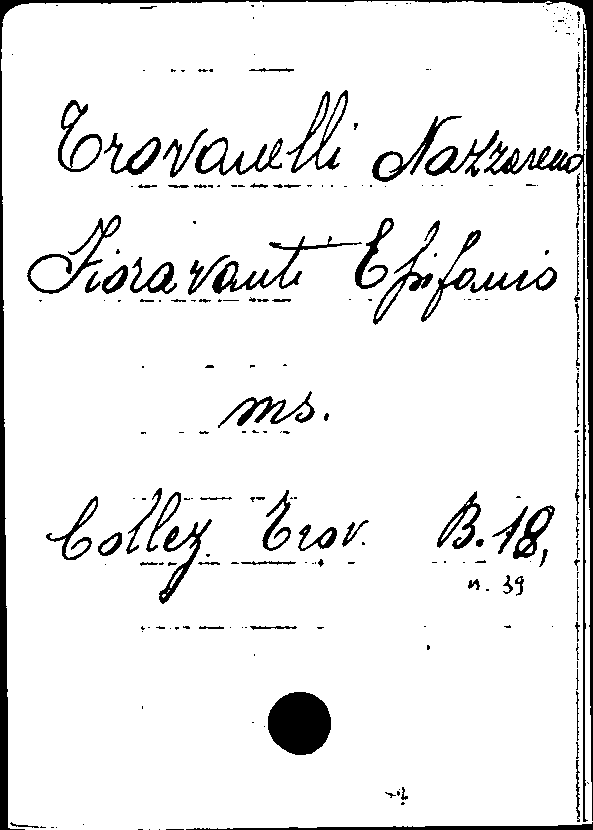 Trovanelli Nazzareno
Fioravanti Epifanio
ms.
Collez. Trov. B.18,
n. 39